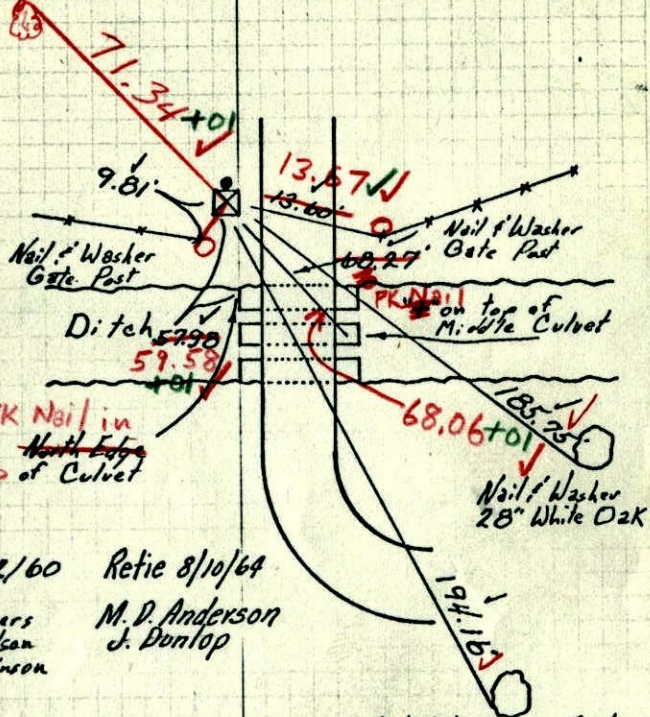 71.34 +01
9.81'
13.67
13.60'
Nail & Washer
Gate Post
Nail & Washer
Gate Post
68.27'
PK Nail
on top of
Middle Culvet
Ditch
57.98
59.58
+01
68.06 +01
185.75
K Nail in
North Edge
of Culvet
Nail & Washer
28" White Oak
2/60
Retie 8/10/64
M. D. Anderson
J. Dunlop
194.16